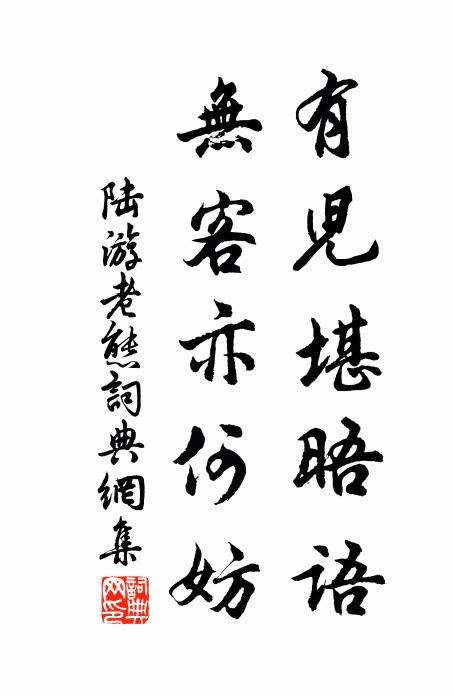 有兒堪晤語
無客亦何妨
陆游老熊詞典網集
詞典
网印